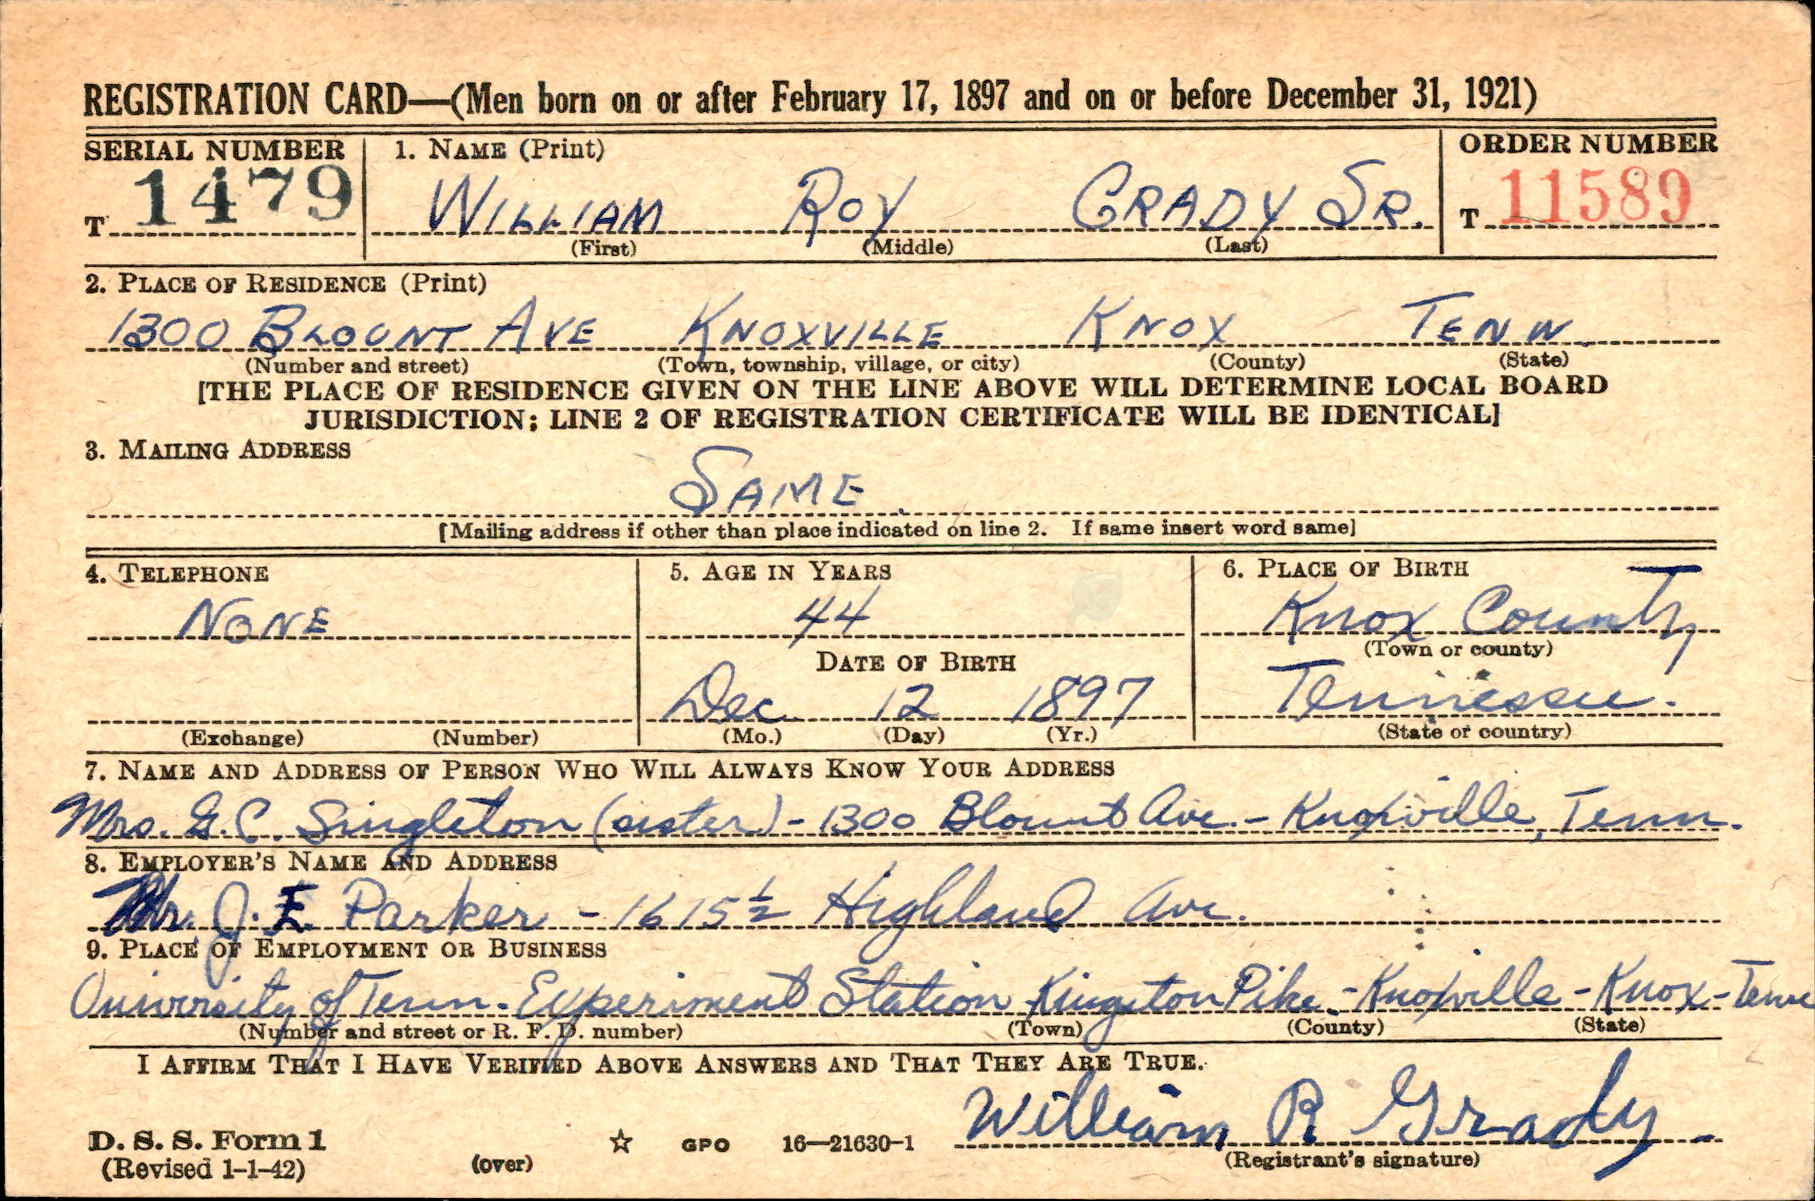 REGISTRATION CARD—(Men born on or after February 17, 1897 and on or before December 31, 1921)
SERIAL NUMBER 1. NAME (Print) ORDER NUMBER
T 1479 WILLIAM ROY GRADY SR. T 11589
(First) (Middle) (Last)
2. PLACE OF RESIDENCE (Print)
1300 BLOUNT AVE KNOXVILLE KNOX TENN.
(Number and street) (Town, township, village, or city) (County) (State)
[THE PLACE OF RESIDENCE GIVEN ON THE LINE ABOVE WILL DETERMINE LOCAL BOARD
JURISDICTION; LINE 2 OF REGISTRATION CERTIFICATE WILL BE IDENTICAL]
3. MAILING ADDRESS
SAME.
[Mailing address if other than place indicated on line 2. If same insert word same]
4. TELEPHONE 5. AGE IN YEARS 6. PLACE OF BIRTH
NONE 44 Knox County
(Town or county)
DATE OF BIRTH
Dec. 12 1897 Tennessee.
(Exchange) (Number) (Mo.) (Day) (Yr.) (State or country)
7. NAME AND ADDRESS OF PERSON WHO WILL ALWAYS KNOW YOUR ADDRESS
Mrs. G. C. Singleton (sister) - 1300 Blount Ave. - Knoxville, Tenn.
8. EMPLOYER'S NAME AND ADDRESS
Mr. J. E. Parker - 1615½ Highland Ave.
9. PLACE OF EMPLOYMENT OR BUSINESS
University of Tenn. Experiment Station Kingston Pike - Knoxville - Knox - Tenn
(Number and street or R. F. D. number) (Town) (County) (State)
I AFFIRM THAT I HAVE VERIFIED ABOVE ANSWERS AND THAT THEY ARE TRUE.
William R Grady
D. S. S. Form 1 ☆ GPO 16—21630-1
(Revised 1-1-42) (over) (Registrant's signature)